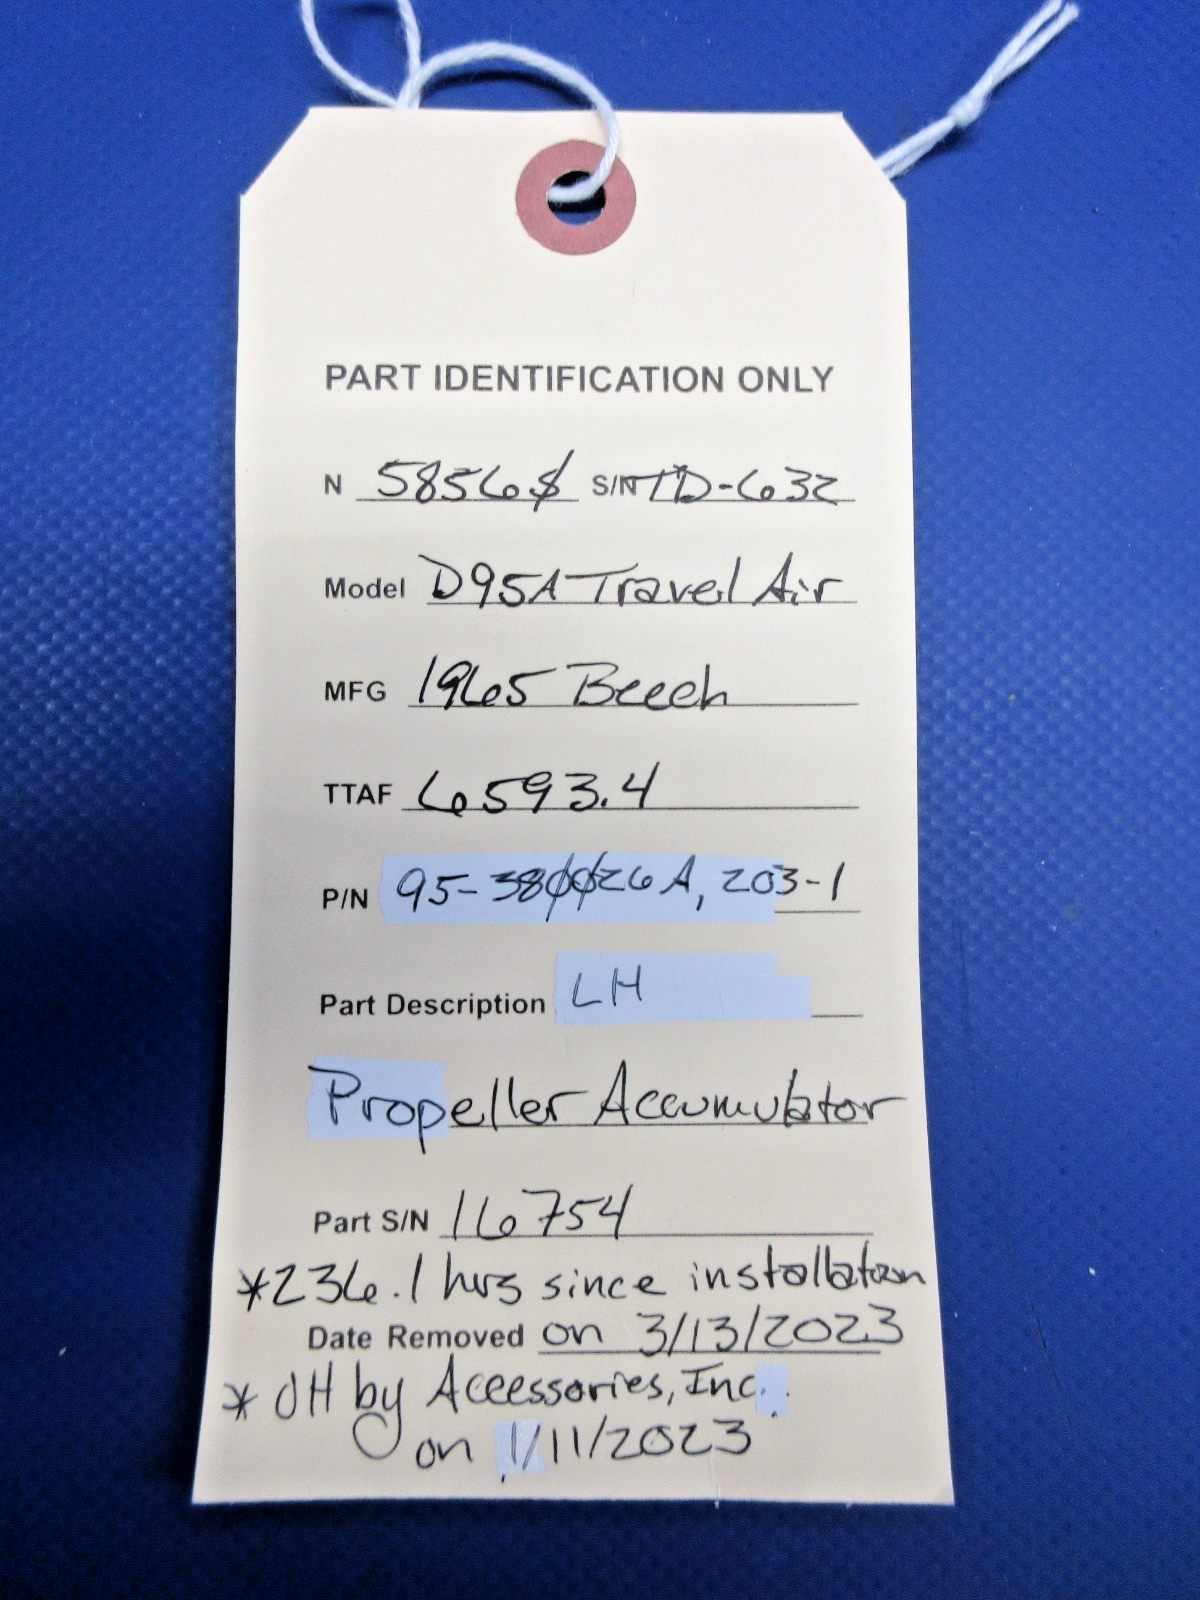 PART IDENTIFICATION ONLY
N 5856Ø S/N TD-632
Model D95A Travel Air
MFG 1965 Beech
TTAF 6593.4
P/N 95-38ØØ26A, 203-1
Part Description LH
Propeller Accumulator
Part S/N 16754
*236.1 hrs since installation
Date Removed on 3/13/2023
* OH by Accessories, Inc.
on 1/11/2023